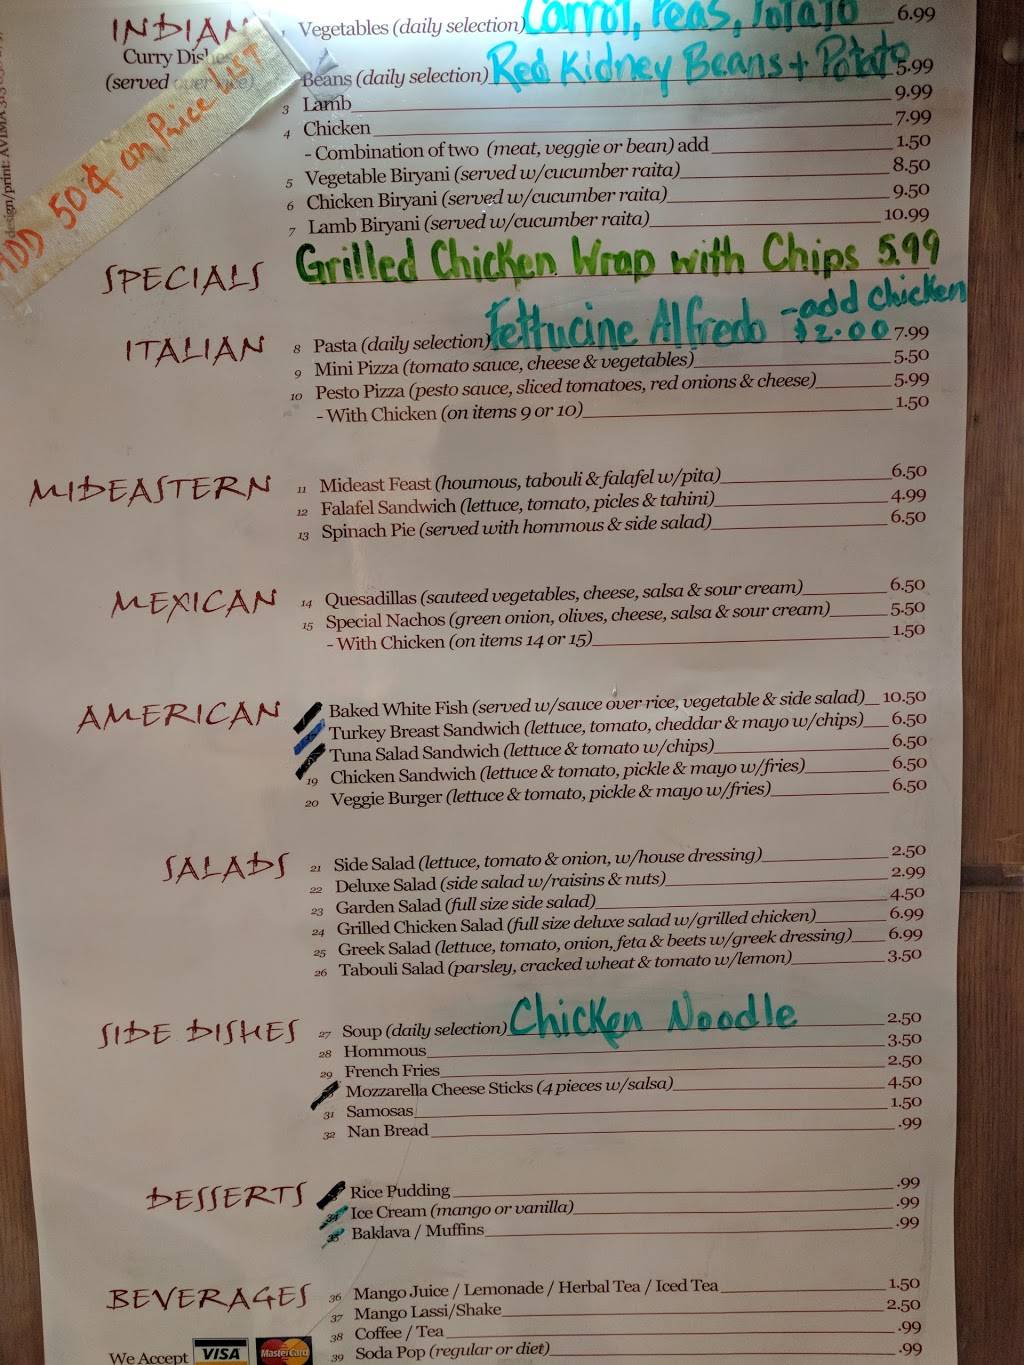 design/print: AVIMA 313
INDIAN
Curry Dishes
(served over rice)
ADD 50¢ on Price List
1 Vegetables (daily selection) Carrot, Peas, Potato 6.99
Beans (daily selection) Red Kidney Beans + Potato 5.99
3 Lamb 9.99
4 Chicken 7.99
- Combination of two (meat, veggie or bean) add 1.50
5 Vegetable Biryani (served w/cucumber raita) 8.50
6 Chicken Biryani (served w/cucumber raita) 9.50
7 Lamb Biryani (served w/cucumber raita) 10.99
SPECIALS Grilled Chicken Wrap with Chips 5.99
ITALIAN
8 Pasta (daily selection) Fettucine Alfredo - add chicken $2.00 7.99
9 Mini Pizza (tomato sauce, cheese & vegetables) 5.50
10 Pesto Pizza (pesto sauce, sliced tomatoes, red onions & cheese) 5.99
- With Chicken (on items 9 or 10) 1.50
MIDEASTERN
11 Mideast Feast (houmous, tabouli & falafel w/pita) 6.50
12 Falafel Sandwich (lettuce, tomato, picles & tahini) 4.99
13 Spinach Pie (served with hommous & side salad) 6.50
MEXICAN
14 Quesadillas (sauteed vegetables, cheese, salsa & sour cream) 6.50
15 Special Nachos (green onion, olives, cheese, salsa & sour cream) 5.50
- With Chicken (on items 14 or 15) 1.50
AMERICAN
Baked White Fish (served w/sauce over rice, vegetable & side salad) 10.50
Turkey Breast Sandwich (lettuce, tomato, cheddar & mayo w/chips) 6.50
Tuna Salad Sandwich (lettuce & tomato w/chips) 6.50
19 Chicken Sandwich (lettuce & tomato, pickle & mayo w/fries) 6.50
20 Veggie Burger (lettuce & tomato, pickle & mayo w/fries) 6.50
SALADS
21 Side Salad (lettuce, tomato & onion, w/house dressing) 2.50
22 Deluxe Salad (side salad w/raisins & nuts) 2.99
23 Garden Salad (full size side salad) 4.50
24 Grilled Chicken Salad (full size deluxe salad w/grilled chicken) 6.99
25 Greek Salad (lettuce, tomato, onion, feta & beets w/greek dressing) 6.99
26 Tabouli Salad (parsley, cracked wheat & tomato w/lemon) 3.50
SIDE DISHES
27 Soup (daily selection) Chicken Noodle 2.50
28 Hommous 3.50
29 French Fries 2.50
Mozzarella Cheese Sticks (4 pieces w/salsa) 4.50
31 Samosas 1.50
32 Nan Bread .99
DESSERTS
Rice Pudding .99
34 Ice Cream (mango or vanilla) .99
35 Baklava / Muffins .99
BEVERAGES
36 Mango Juice / Lemonade / Herbal Tea / Iced Tea 1.50
37 Mango Lassi/Shake 2.50
38 Coffee / Tea .99
39 Soda Pop (regular or diet) .99
We Accept VISA MasterCard